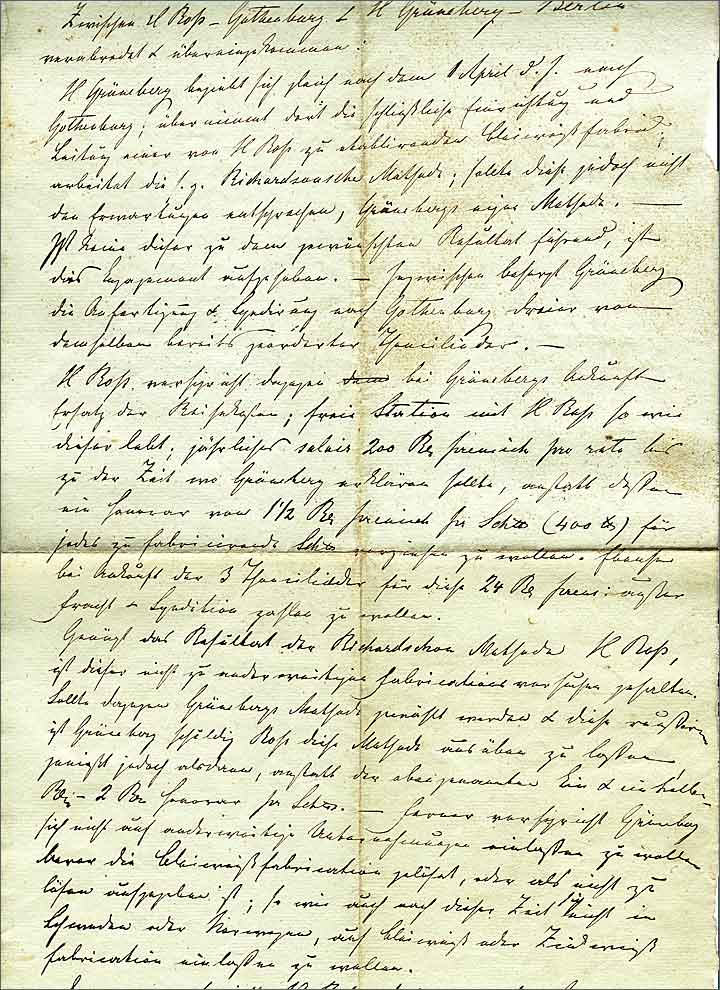 Zwischen H Roß – Gothenburg & H Grüneberg – Berlin
verabredet & übereingekommen:
H Grüneberg begiebt sich gleich nach dem 1 April d. J. nach
Gothenburg; übernimmt dort die schließliche Einrichtung und
Leitung einer von H Roß zu etablirenden Bleiweißfabrik;
arbeitet die s. g. Richardsonsche Methode; sollte diese jedoch nicht
den Erwartungen entsprechen, Grünebergs eigne Methode. —
Ist keine dieser zu dem gewünschten Resultat führend, ist
dies Engagement aufgehoben. — Inzwischen besorgt Grüneberg
die Anfertigung & Spedirung nach Gothenburg dreier von
demselben bereits georderter Thoncilinder. —
H Roß verspricht dagegen bei Grünebergs Ankunft
Ersatz der Reisekosten; freie Station mit H Roß so wie
dieser lebt; jährliches salair 200 preußisch pro rata bis
zu der Zeit wo Grüneberg erklären sollte, anstatt dessen
ein Honorar von 1 1/2 preussisch pr (400 ) für
jedes zu fabricirende vorziehen zu wollen. Ebenso
bei Ankunft der 3 Thoncilinder für diese 24 preuss: außer
Fracht & Spedition zahlen zu wollen.
Genügt das Resultat der Richardschon Methode H Roß,
ist dieser nicht zu anderweitigen Fabricationsversuchen gehalten.
Sollte dagegen Grünebergs Methode gewählt werden & diese reussiren
ist Grüneberg schuldig Roß diese Methode ausüben zu lassen
genießt jedoch alsdann, anstatt der obengenannten Ein & ein halben
– 2 Honorar pr . — Ferner verspricht Grüneberg
sich nicht auf anderweitige Unternehmungen einlassen zu wollen
bevor die Bleiweißfabrication gelöset, oder als nicht zu
lösen aufgegeben ist; so wie auch nach dieser Zeit sich nicht in
Schweden oder Norwegen, auf Bleiweiß oder Zinkweiß
Fabrication einlassen zu wollen.